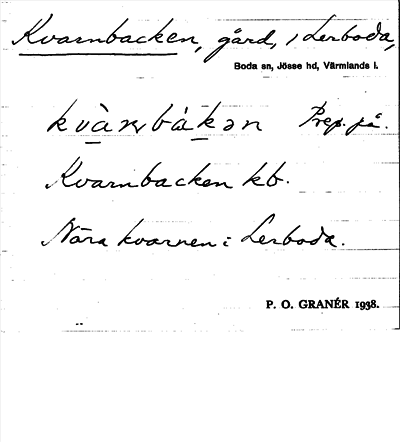 Kvarnbacken, gård, i Lerboda,
Boda sn, Jösse hd, Värmlands l.
kvànbàkən Prep. på.
Kvarnbacken kb.
Nära kvarnen i Lerboda.
P. O. GRANÉR 1938.